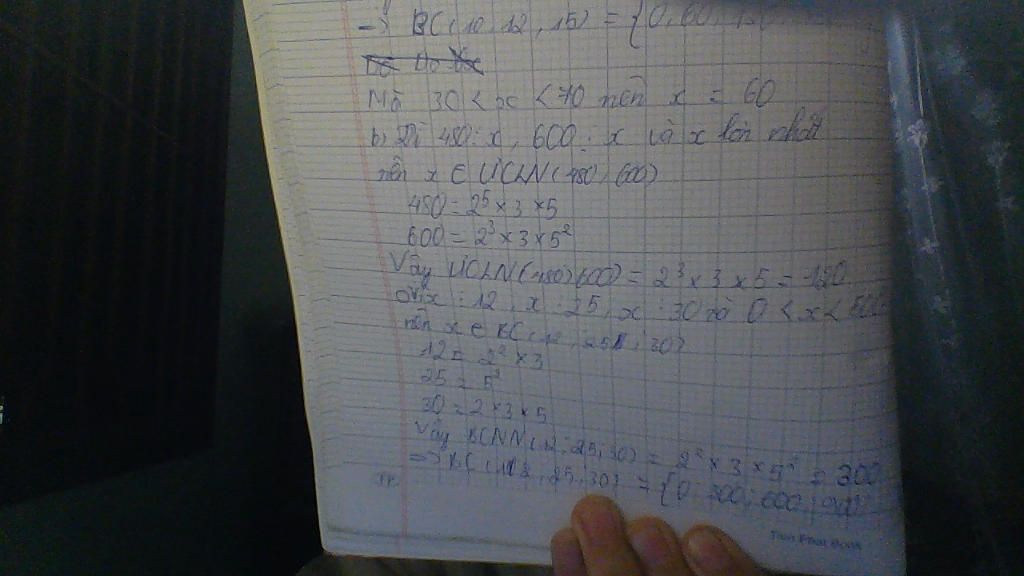 => BC(10,12,15) = {0,60,120
Mà 30 < x < 70 nên x = 60
b) Vì 480 ⋮ x, 600 ⋮ x và x lớn nhất
nên x ∈ ƯCLN(480, 600)
480 = 2⁵ × 3 × 5
600 = 2³ × 3 × 5²
Vậy ƯCLN(480,600) = 2³ × 3 × 5 = 120
x ⋮ 12, x ⋮ 25, x ⋮ 30 và 0 < x < 500
nên x ∈ BC(12, 25, 30)
12 = 2² × 3
25 = 5²
30 = 2 × 3 × 5
Vậy BCNN(12, 25, 30) = 2² × 3 × 5² = 300
=> BC(12, 25, 30) = {0, 300, 600, 900
Tien Phat Book